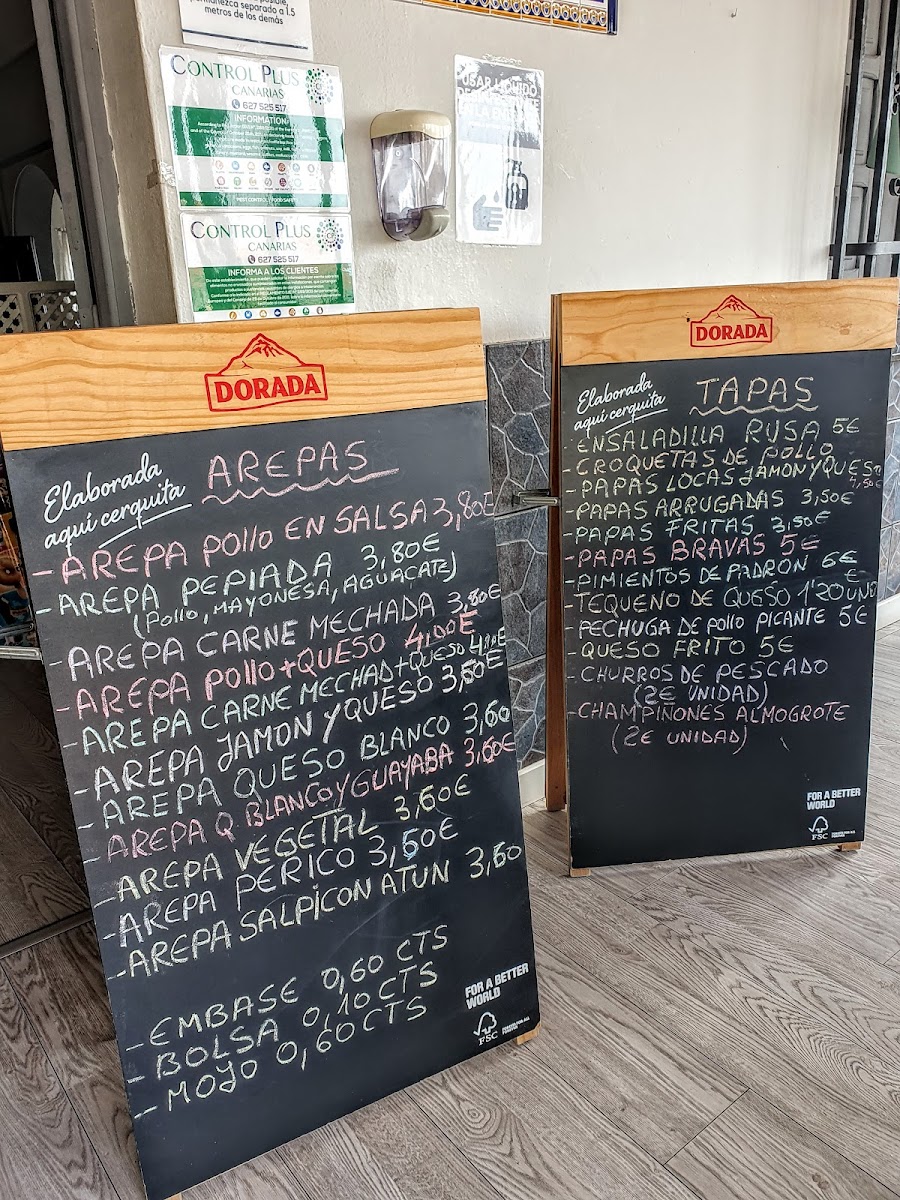 permanezca separado a 1.5
metros de los demás
CONTROL PLUS
CANARIAS
627 525 517
INFORMATION
PEST CONTROL / FOOD SAFETY
CONTROL PLUS
CANARIAS
627 525 517
INFORMA A LOS CLIENTES
USAR LIQUIDO
DORADA
Elaborada
aquí cerquita
AREPAS
- AREPA POllO EN SALSA 3,80E
- AREPA PEPIADA 3.80E
(POllO, MAYONESA, AGUACATE)
- AREPA CARNE MECHADA 3,80E
- AREPA POllO+QUESO 4,00E
- AREPA CARNE MECHAD+QUESO 4,10E
- AREPA JAMON Y QUESO 3,60E
- AREPA QUESO BLANCO 3,60
- AREPA Q BLANCO Y GUAYABA 3,60E
- AREPA VEGETAL 3,60E
- AREPA PERICO 3,60E
- AREPA SALPICON ATUN 3,60
- EMBASE 0,60 CTS
- BOLSA 0,10 CTS
- MOJO 0,60 CTS
FOR A BETTER
WORLD
FSC
DORADA
Elaborada
aquí cerquita
TAPAS
ENSALADILLA RUSA 5E
- CROQUETAS DE POLLO
- PAPAS LOCAS JAMON Y QUESO
4,50E
- PAPAS ARRUGADAS 3,50E
- PAPAS FRITAS 3,50E
- PAPAS BRAVAS 5E
- PIMIENTOS DE PADRON 6E
- TEQUEÑO DE QUESO 1'20 UNO
- PECHUGA DE POLLO PICANTE 5E
- QUESO FRITO 5E
- CHURROS DE PESCADO
(2E UNIDAD)
- CHAMPIÑONES ALMOGROTE
(2E UNIDAD)
FOR A BETTER
WORLD
FSC